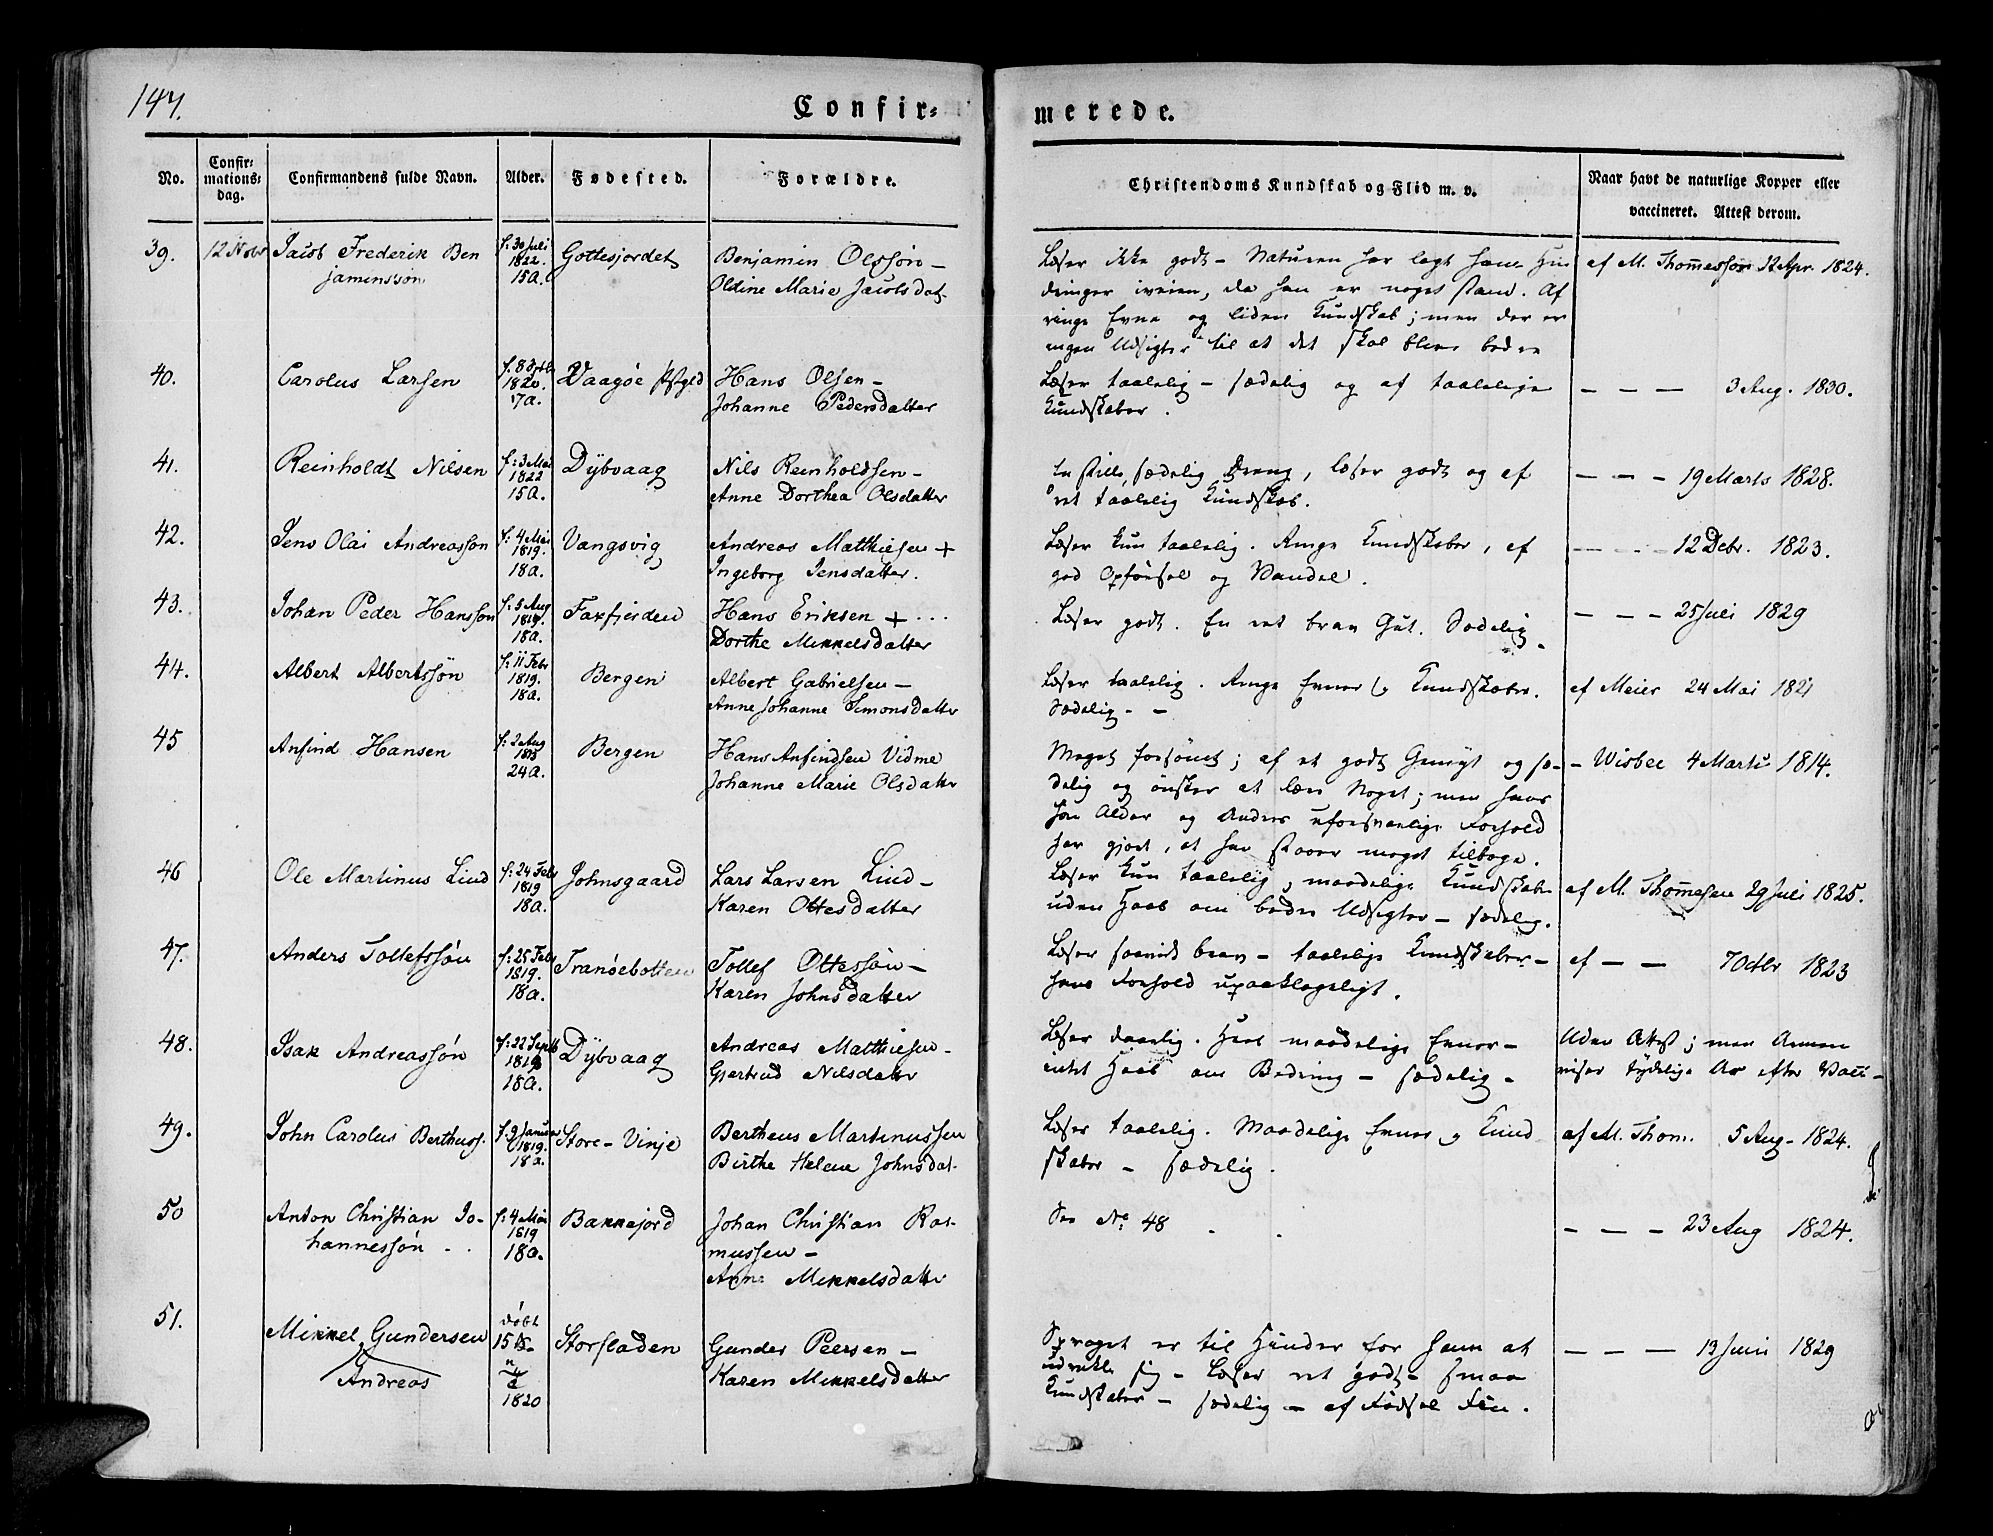 147.
Confir=
merede.
No.
Confir=
mations=
dag.
Confirmandens fulde Navn.
Alder.
Fødested.
Forældre.
Christendoms Kundskab og Flid m. v.
Naar havt de naturlige Kopper eller
vaccineret. Attest derom.
39. 12 Novr Jacob Frederik Ben
jaminssøn
f: 30 Juli
1822.
15 a.
Gottesjordet
Benjamin Olssøn –
Oldine Marie Jacobsdat.
Læser ikke godt – Naturen har lagt ham Hin
dringer iveien, da han er noget stam. Af
ringe Evne og liden Kundskab; men der er
ingen Udsigter til at det skal blive bedre
af M. Thomessøn 12 Apr. 1824.
40. Carolus Larsen
1820.
17 a.
Vaagøe Pstgld
Hans Olsen –
Johanne Pedersdatter
Læser taalelig – sædelig og af taalelige
Kundskaber.
– – – 3 Aug. 1830.
41. Reinholdt Nilsen
f: 3 Mai
1822
15 a.
Dybvaag
Nils Reinholdsen –
Anne Dorthea Olsdatter
En stille, sædelig Dreng, læser godt og af
ret taalelig Kundskab.
– – – 19 Marts 1828.
42. Jens Olai Andreassøn
f: 4 Mai
1819.
18 a.
Vangsvig
Andreas Matthiesen +
Ingeborg Jensdatter.
Læser kun taalelig. Ringe Kundskaber, af
god Opførsel og Vandel.
– – – 12 Debr. 1823.
43. Johan Peder Hanssøn
f: 5 Aug
1819.
18 a.
Faxfjorden
Hans Eriksen + ...
Dorthe Mikkelsdatter
Læser godt. En ret brav Gut. Sædelig.
– – – 25 Juli 1829
44. Albert Albertssøn
f: 11 Febr
1819.
18 a.
Bergen
Albert Gabrielsen –
Anne Johanne Simonsdatter
Læser taalelig. Ringe Evner og Kundskaber.
Sædelig. –
af Meier 24 Mai 1821
45 Anfind Hansen
f: 2 Aug
1813
24 a.
Bergen
Hans Anfindsen Vidme
Johanne Marie Olsdatter
Meget forsømt; af et godt Gemyt og sæ-
delig og ønsker at lære Noget; men hans
Alder og Andres uforsvarlige Forhold
har gjort, at han staaer meget tilbage.
– Wisbec 4 Marts 1814.
46 Ole Martinus Lind
f: 24 Febr
1819
18 a.
Johnsgaard
Lars Larsen Lind –
Karen Ottesdatter
Læser kun taalelig, maadelige Kundskaber
uden Haab om bedre Udsigter – sædelig.
af M. Thomesen 29 Juli 1825.
47. Anders Tollefssøn
f: 25 Febr
1819.
18 a.
Tranøebotten
Tollef Ottessøn –
Karen Johnsdatter
Læser saavidt brav – taalelige Kundskaber –
hans Forhold upaaklageligt.
af – – 7 Octbr 1823
48. Isak Andreassøn
f: 22 Septb
1819
18 a.
Dybvaag
Andreas Matthiesen –
Gjertrud Nilsdatter
Læser daarlig. Har maadelige Evner –
intet Haab om Bedring – sædelig –
Uden Attest; men Armen
viser tydelige Ar efter Vacci –
49. John Carolus Bertheuss.
f. 9 Januar
1819.
18 a.
Store-Vinje
Bertheus Martinussen
Birthe Helene Johnsdat.
Læser taalelig. Maadelige Evner og Kund
skaber – sædelig.
af M. Thom. 5 Aug. 1824.
50 Anton Christian Jo-
hannessøn
f: 4 Mai
1819
18 a.
Bakkejord
Johan Christian Ras-
mussen –
Anne Mikkelsdatter
See No 48
– – – 23 Aug 1824.
51. Mikkel Gundersen
Andreas
døbt
1820
Storsladen
Gunder Peersen –
Karen Mikkelsdatter
Sproget er til Hinder for ham at
udvikle sig – Læser ret godt – Smaa
Kundskaber – sædelig – af Fødsel Fin.
– – – 13 Juni 1829